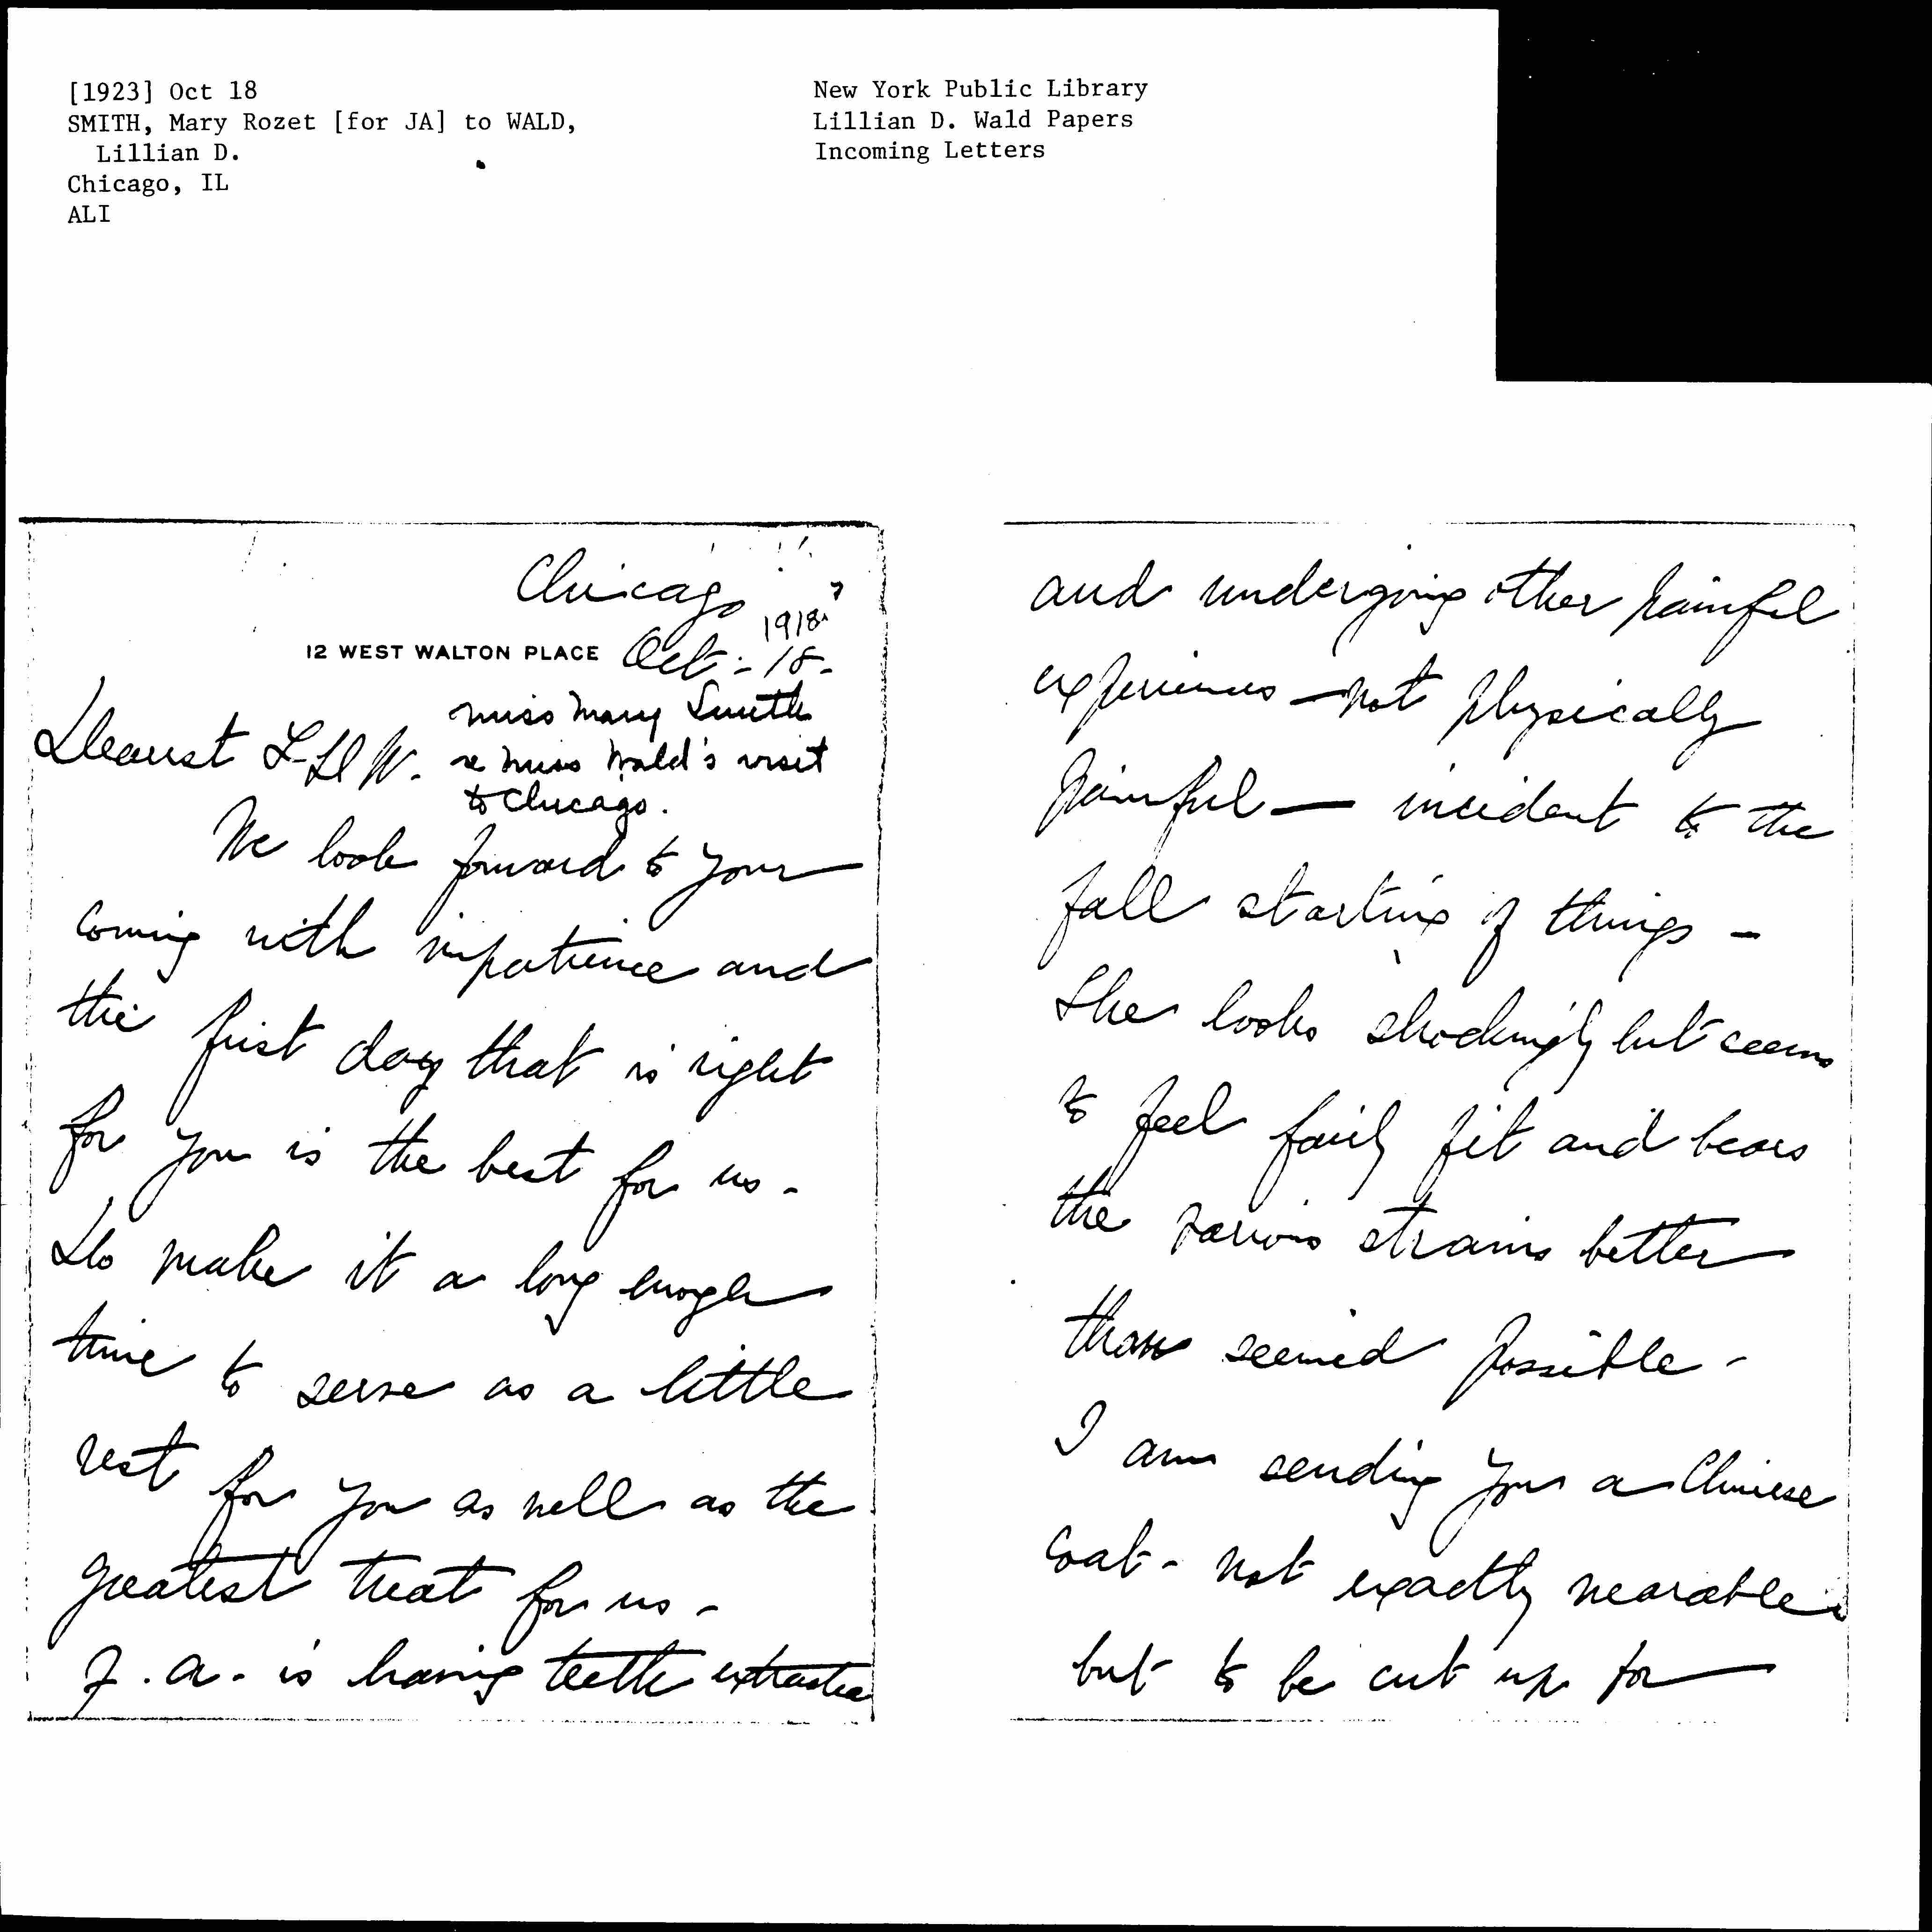 [1923] Oct 18
SMITH, Mary Rozet [for JA] to WALD,
Lillian D.
Chicago, IL
ALI
New York Public Library
Lillian D. Wald Papers
Incoming Letters
Chicago
1918?
12 WEST WALTON PLACE Oct - 18 -
Miss Mary Smith
re Miss Wald's visit
to Chicago.
Dearest L-D W.
We look forward to your
coming with impatience and
the first day that is right
for you is the best for us -
Do make it a long enough
time to serve as a little
rest for you as well as the
greatest treat for us -
J. A. is having teeth extracted
and undergoing other painful
experiences - not physically
painful - incident to the
fall starting of things -
She looks shockingly but seems
to feel fairly fit and bears
the various strains better
than seemed possible -
I am sending you a Chinese
coat - not exactly wearable
but to be cut up for